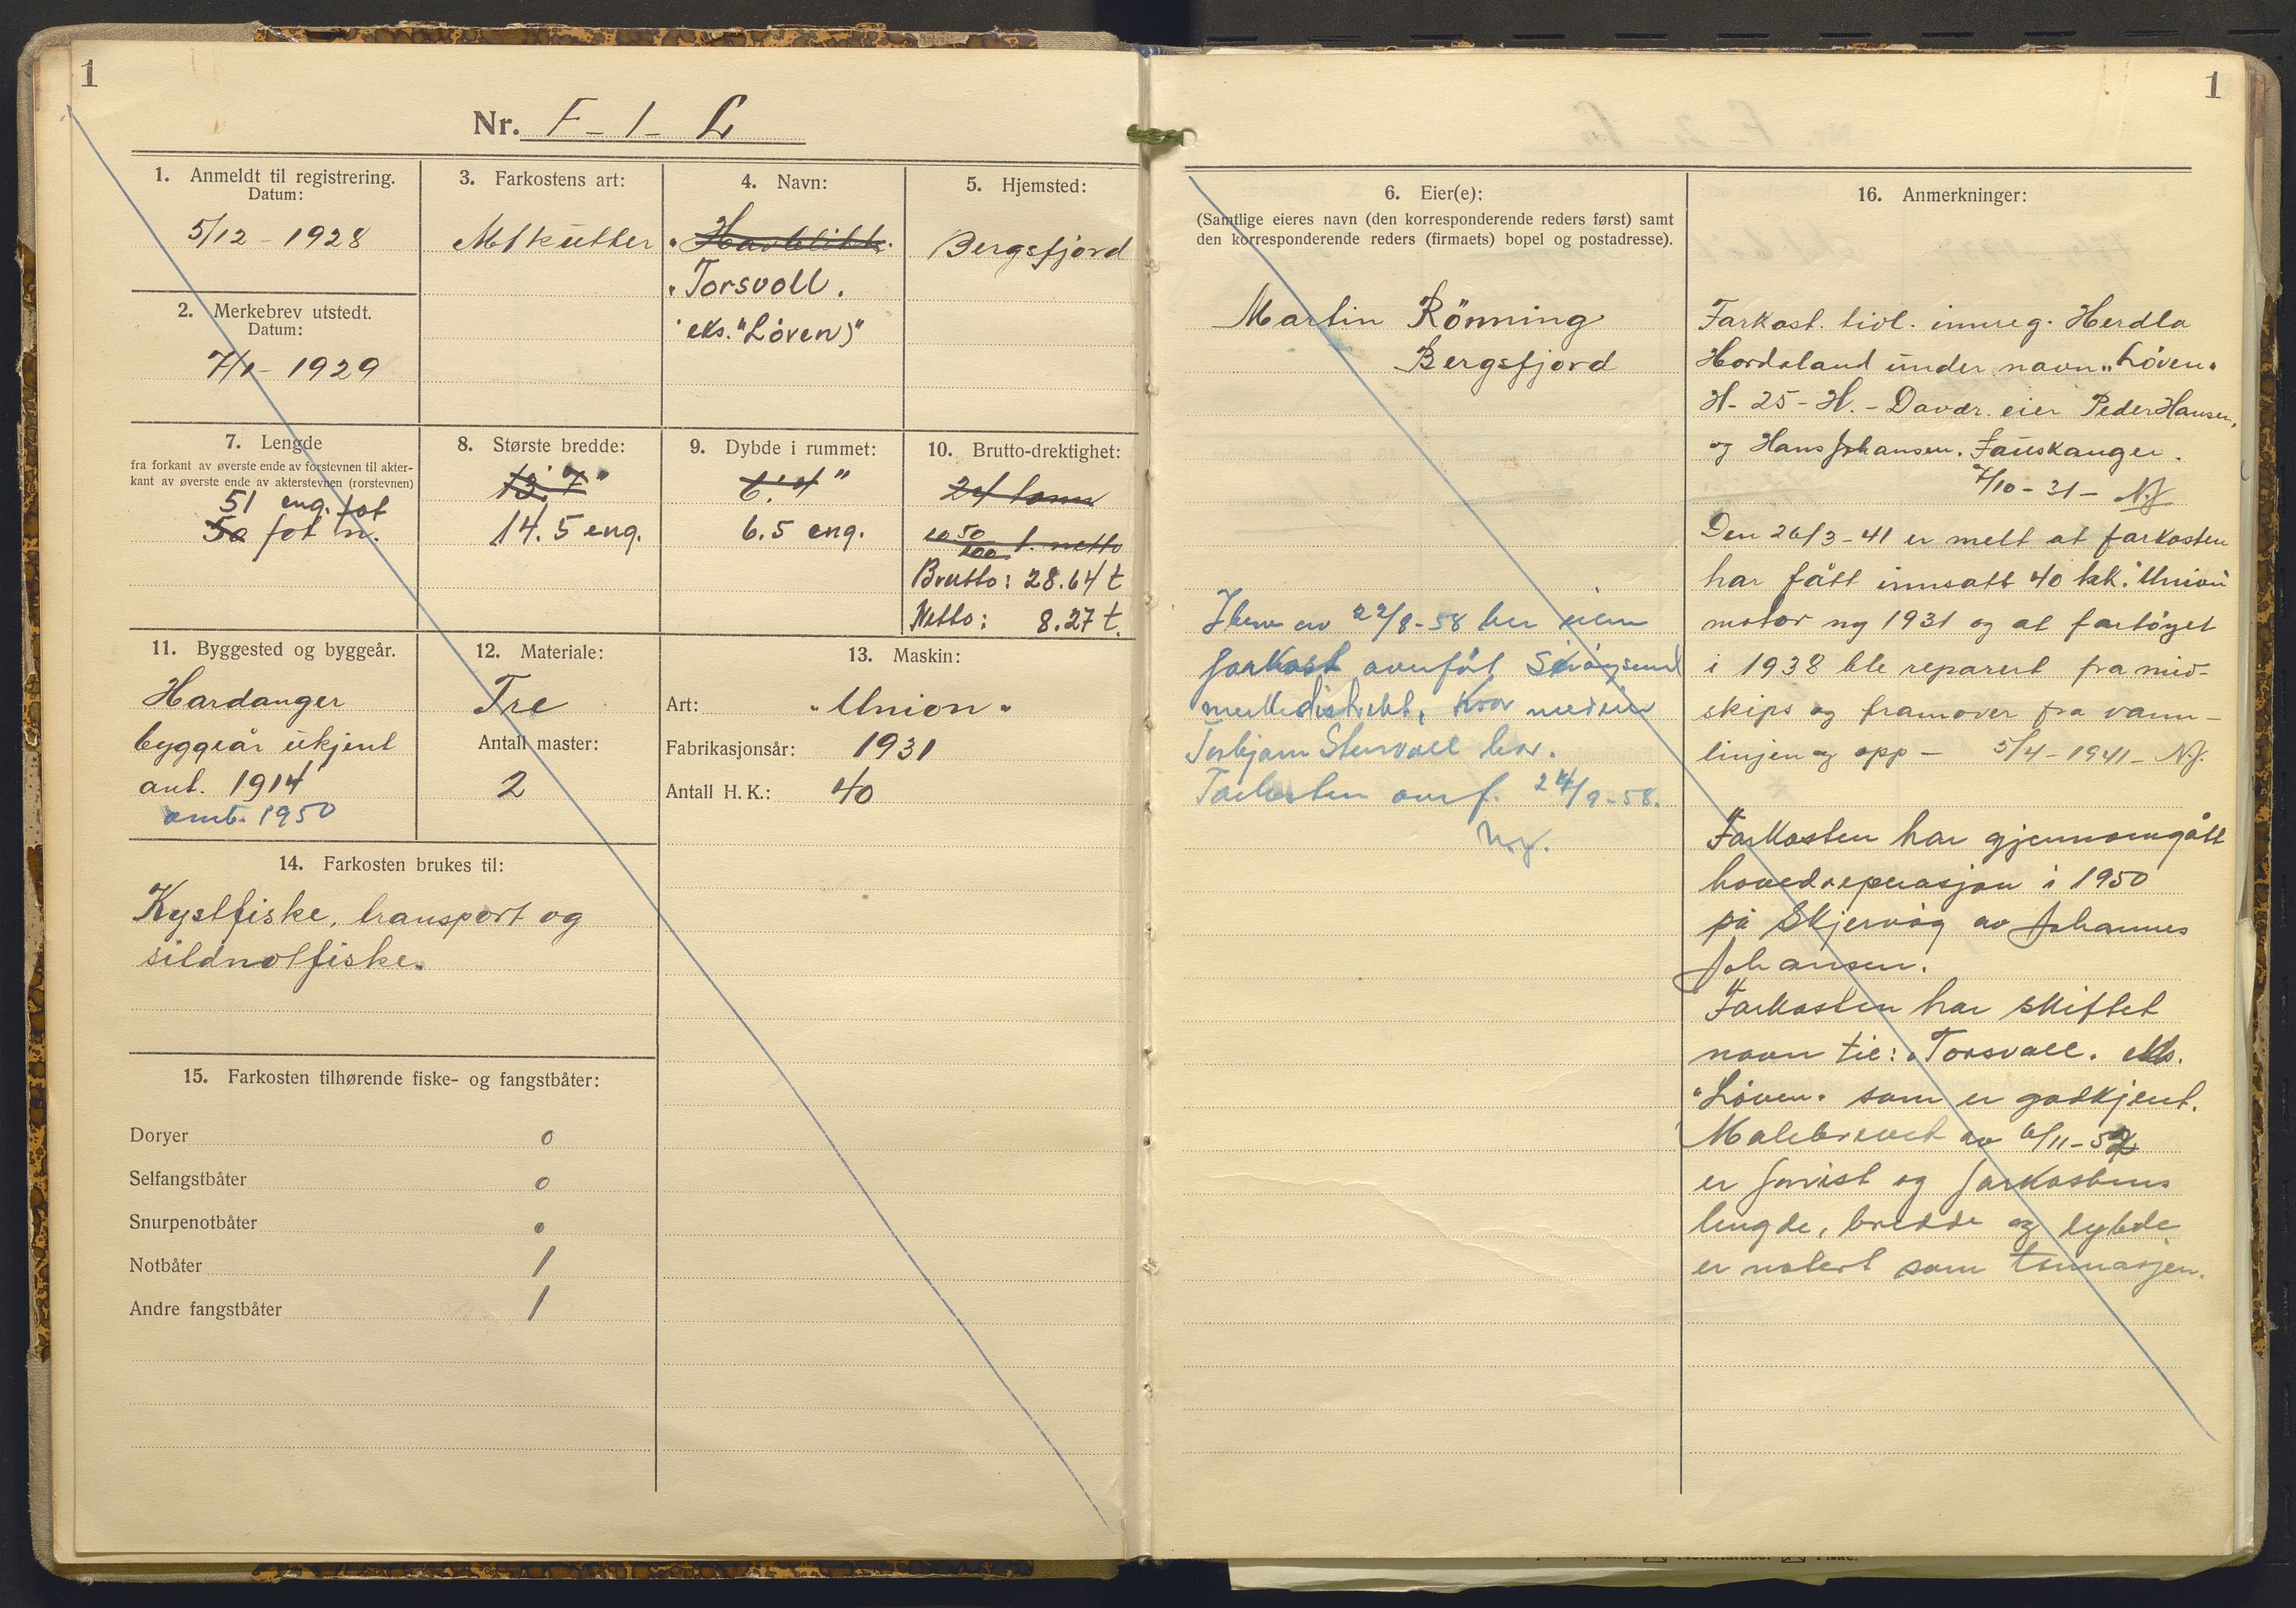 1
Nr. F - 1 - L
1. Anmeldt til registrering.
Datum:
5/12 - 1928
2. Merkebrev utstedt.
Datum:
7/1 - 1929
3. Farkostens art:
M/kutter
4. Navn:
"Havblikk"
"Torsvoll.
eks. "Löven)"
5. Hjemsted:
Bergsfjord
7. Lengde
fra forkant av øverste ende av forstevnen til akter-
kant av øverste ende av akterstevnen (rorstevnen)
51 eng. fot
50 fot n.
8. Største bredde:
13' 7"
14.5 eng.
9. Dybde i rummet:
6' 4"
6.5 eng.
10. Brutto-drektighet:
24 tonn
10 50/100 t. netto
Brutto: 28.64 t
Netto: 8.27 t.
11. Byggested og byggeår.
Hardanger
byggeår ukjent
ant. 1914
omb. 1950
12. Materiale:
Tre
Antall master:
2
13. Maskin:
Art: "Union"
Fabrikasjonsår: 1931
Antall H. K.: 40
14. Farkosten brukes til:
Kystfiske, transport og
sildnotfiske.
15. Farkosten tilhørende fiske- og fangstbåter:
Doryer 0
Selfangstbåter 0
Snurpenotbåter 0
Notbåter 1
Andre fangstbåter 1
1
6. Eier(e):
(Samtlige eieres navn (den korresponderende reders først) samt
den korresponderende reders (firmaets) bopel og postadresse).
Martin Rönning
Bergsfjord
av 22/8-58 ber
farkost overfört
merkedistrikt, kvor medeier
Torbjørn bor.
Farkosten overf. 24/9-58.
N.J.
16. Anmerkninger:
Farkost. tidl. innreg. Herdla
Hordaland under navn "Löven"
H - 25 - H. - Davær. eier Peder Hansen,
og Hans Johansen. Fauskanger.
7/10 - 31 - N.J
Den 26/3 - 41 er melt at farkosten
har fått innsatt 40 hk. "Union"
motor ny 1931 og at fartöyet
i 1938 ble reparert fra mid-
skips og framover fra vann-
linjen og opp - 5/4 - 1941 - N.J.
Farkosten har gjennomgått
hovedreparasjon i 1950
på Skjervöy av Johannes
Johansen.
Farkosten har skiftet
navn til: "Torsvoll. eks.
"Löven" som er godkjent.
Målebrevet av 6/11 - 52
er forvist og farkostens
lengde, bredde og dybde
er notert som tonnasjen.